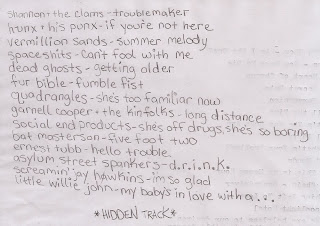 shannon + the clams - troublemaker
hunx + his punx - if you're not here
vermillion sands - summer melody
spaceshits - can't fool with me
dead ghosts - getting older
fur bible - fumble fist
quadrangles - she's too familiar now
garnell cooper + the kinfolks - long distance
social end products - she's off drugs, she's so boring
bat masterson - five foot two
ernest tubb - hello trouble
asylum street spankers - d.r.i.n.k.
screamin' jay hawkins - im so glad
little willie john - my baby's in love with a...
*HIDDEN TRACK*